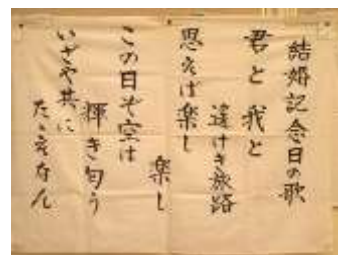 結婚記念日の歌
君と我と
遙けき旅路
思えば楽し
楽し
この日ぞ空は
輝き匂う
いざや共に
たたえなん